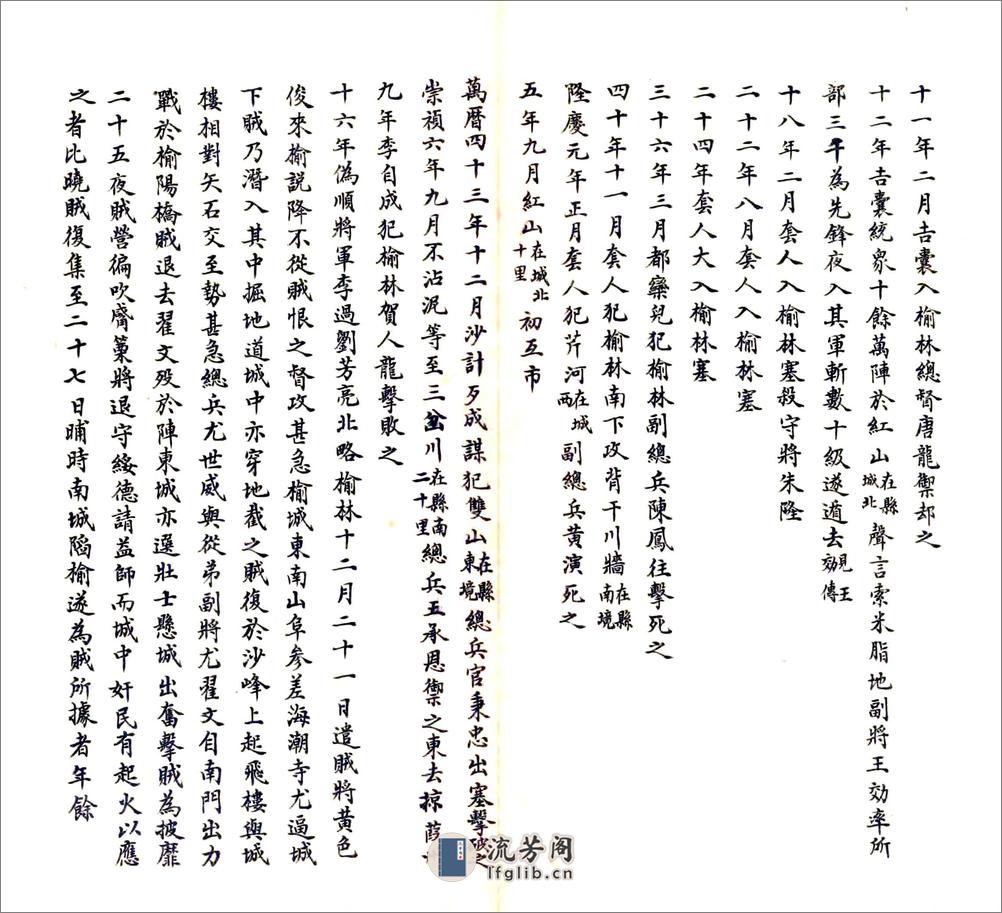 十一年二月吉囊入榆林總督唐龍禦却之
十二年吉囊統衆十餘萬陣於紅山在縣城北聲言索米脂地副將王効率所
部三千為先鋒夜入其軍斬數十級遂遁去見王効傳
十八年二月套人入榆林塞殺守將朱隆
二十二年八月套人入榆林塞
二十四年套人大入榆林塞
三十六年三月都䜌兒犯榆林副總兵陳鳳往擊死之
四十年十一月套人犯榆林南下攻背干川牆在縣南境
隆慶元年正月套人犯芹河在城西副總兵黄演死之
五年九月紅山在城北十里初互市
萬曆四十三年十二月沙計歹成謀犯雙山在縣東境總兵官秉忠出塞擊破之
崇禎六年九月不沾泥等至三岔川在縣南二十里總兵王承恩禦之東去掠葭
九年李自成犯榆林賀人龍擊敗之
十六年偽順將軍李過劉芳亮北略榆林十二月二十一日遣賊將黄色
俊來榆説降不從賊恨之督攻甚急榆城東南山阜参差海潮寺尤逼城
下賊乃潛入其中掘地道城中亦穿地截之賊復於沙峰上起飛樓與城
樓相對矢石交至勢甚急總兵尤世威與從弟副將尤翟文自南門出力
戰於榆陽橋賊退去翟文殁於陣東城亦選壯士懸城出奮擊賊為披靡
二十五夜賊營徧吹觱篥將退守綏德請益師而城中奸民有起火以應
之者比曉賊復集至二十七日晡時南城陷榆遂為賊所據者年餘
流芳阁
lfglib.cn